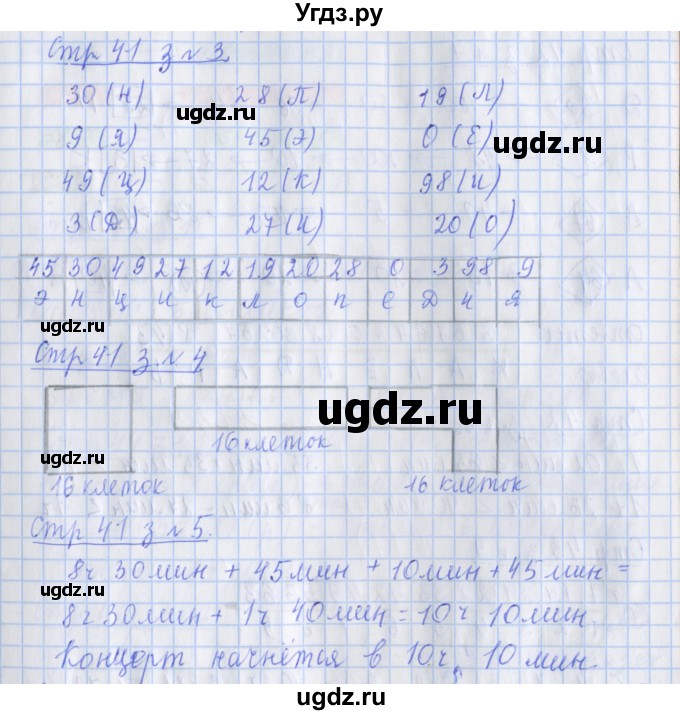 Угдз.ру
Стр 41 з №3
30 (Н) 28 (П) 19 (Л)
ugdz.ru
9 (Я) 45 (Э) 0 (Е)
ugdz.ru
49 (Ц) 12 (К) 98 (И)
3 (Д) 27 (И) 20 (О)
45 30 49 27 12 19 20 28 0 3 98 9
Э Н Ц И К Л О П Е Д И Я
Стр 41 з №4
ugdz.ru
16 клеток
ugdz.ru
16 клеток 16 клеток
Стр 41 з №5.
8ч 30мин + 45мин + 10мин + 45мин =
ugdz.ru
8ч 30мин + 1ч 40мин = 10ч 10мин.
ugdz.ru
Концерт начнётся в 10ч 10мин.
ugdz.ru